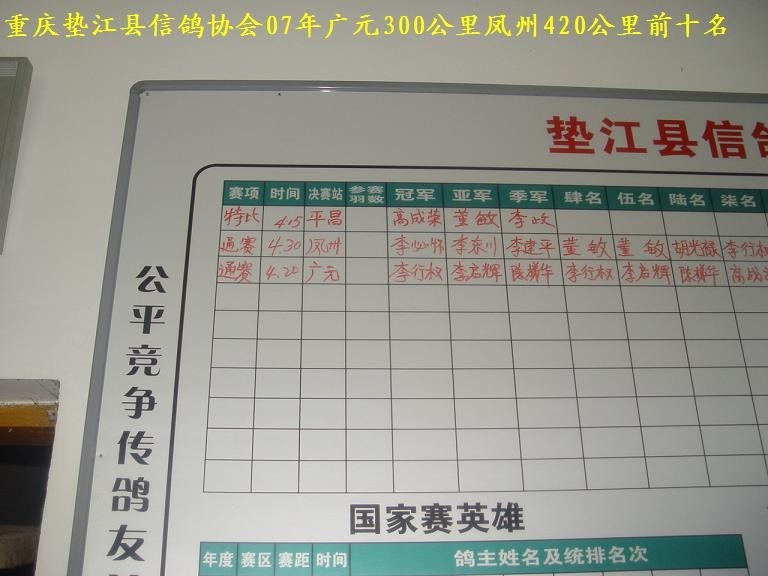 重庆垫江县信鸽协会07年广元300公里凤州420公里前十名
垫江县信鸽
赛项 时间 决赛站 参赛羽数 冠军 亚军 季军 肆名 伍名 陆名 柒名
特比 4.15 平昌 高成荣 董敏 李政
通赛 4.30 凤州 李东川 李建平 董敏 董敏 李行权
通赛 4.20 广元 李行权 李启辉 李行权 李启辉
公平竞争传鸽友
国家赛英雄
年度 赛区 赛距 时间 鸽主姓名及统排名次